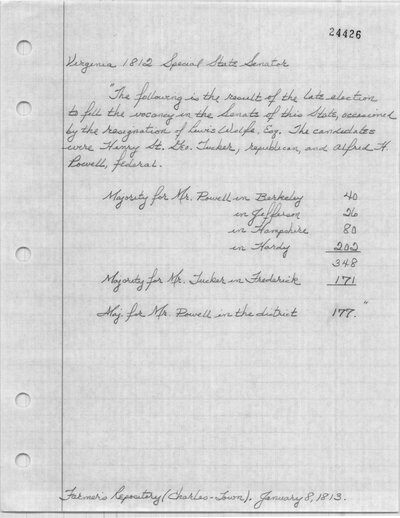 24426
Virginia 1812 Special State Senator
"The following is the result of the late election
to fill the vacancy in the Senate of this State, occasioned
by the resignation of Lewis Wolfe, Esq. The candidates
were Henry St. Geo. Tucker, republican, and Alfred H.
Powell, federal.
Majority for Mr. Powell in Berkeley 40
in Jefferson 26
in Hampshire 80
in Hardy 202
348
Majority for Mr. Tucker in Frederick 171
Maj. for Mr. Powell in the district 177."
Farmer's Repository (Charles-Town). January 8, 1813.